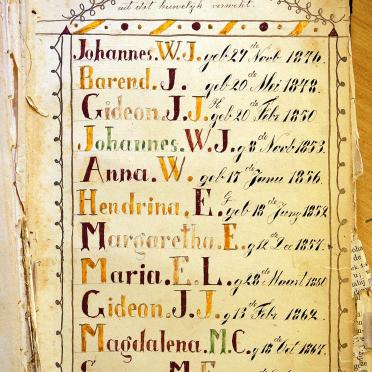 uit dat huwelijk verwekt.
Johannes. W. J. geb 27de Novb 1846.
Barend. J. geb 20de Mei 1848.
Gideon. J. J. geb 20de Febr 1850
Johannes. W. J. g 8de Novb 1853.
Anna. W. geb 15de Janu 1856.
Hendrina. E. geb 18de 1852
Margaretha. E. g 12de Dec 1857.
Maria. E. L. g 28de Maart 1860
Gideon. J. J. g 13de Febr 1862.
Magdalena. M. C. g 18de Oct 1867.